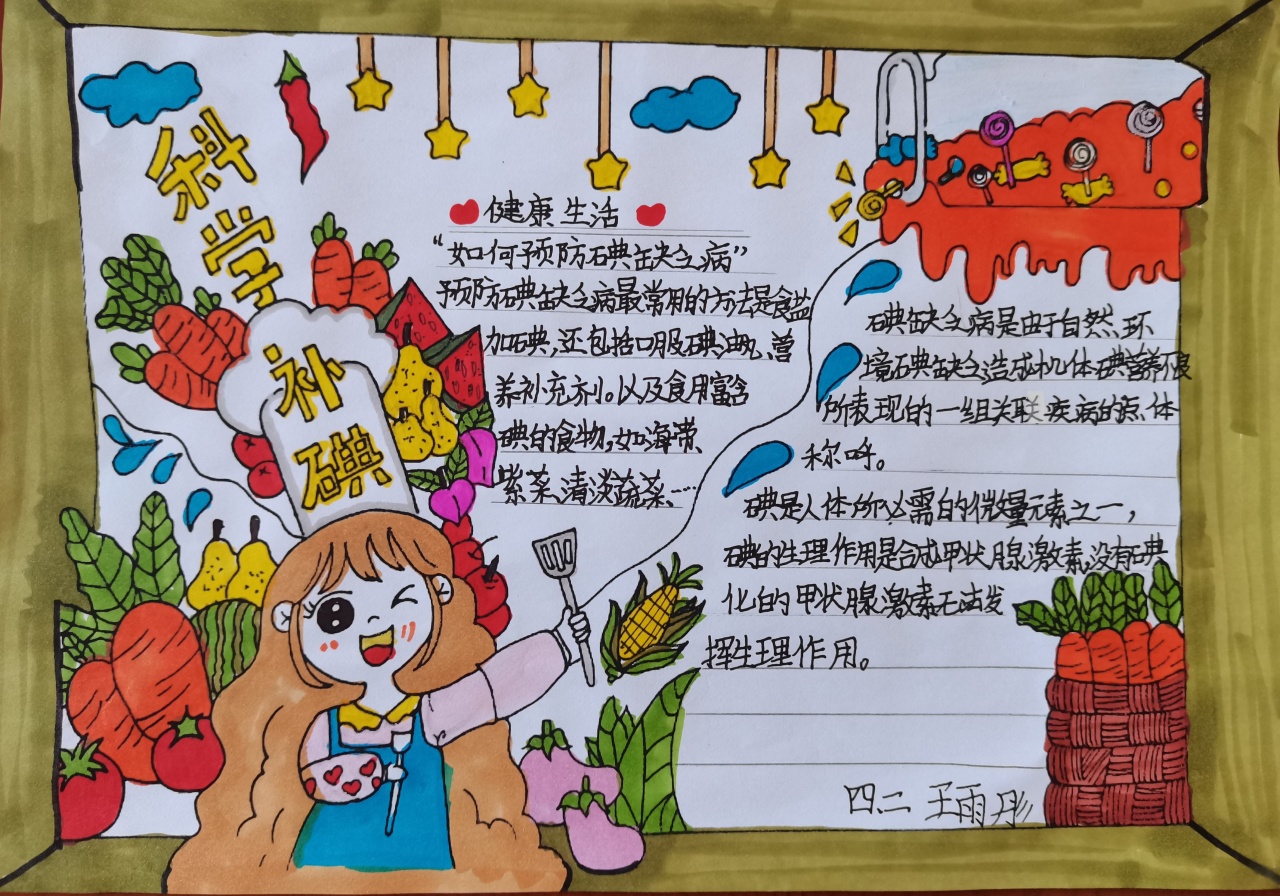 科学
补
碘
健康生活
“如何预防碘缺乏病”
预防碘缺乏病最常用的方法是食盐
加碘,还包括口服碘油丸、营
养补充剂。以及食用富含
碘的食物,如海带、
紫菜、清淡蔬菜、……
碘缺乏病是由于自然环
境碘缺乏造成机体碘营养不良
所表现的一组关联疾病的总体
称呼。
碘是人体所必需的微量元素之一,
碘的生理作用是合成甲状腺激素,没有碘
化的甲状腺激素无法发
挥生理作用。
四.二 王雨彤